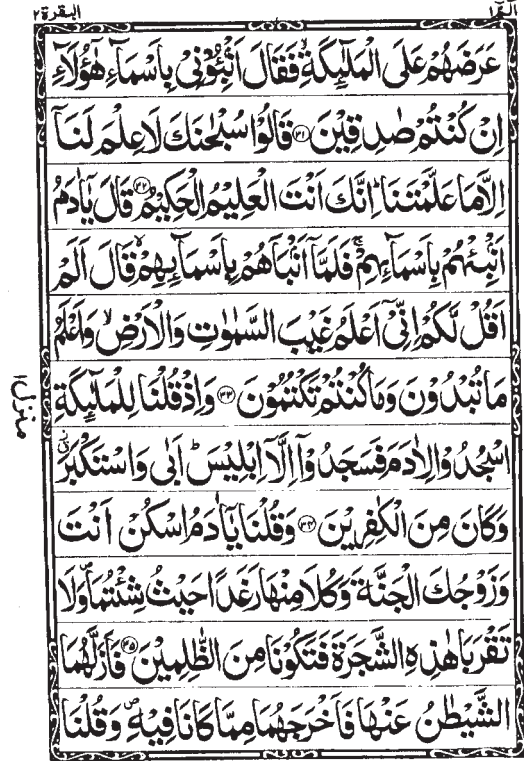 الٓمّٓ ١ البقرة ٢
عَرَضَهُمْ عَلَى الْمَلٰٓئِكَةِ فَقَالَ اَنْۢبِـُٔوْنِیْ بِاَسْمَآءِ هٰۤؤُلَآءِ
اِنْ كُنْتُمْ صٰدِقِیْنَ ﴿۳۱﴾ قَالُوْا سُبْحٰنَكَ لَا عِلْمَ لَنَاۤ
اِلَّا مَا عَلَّمْتَنَا ؕ اِنَّكَ اَنْتَ الْعَلِیْمُ الْحَكِیْمُ ﴿۳۲﴾ قَالَ یٰۤاٰدَمُ
اَنْۢبِئْهُمْ بِاَسْمَآىِٕهِمْ ۚ فَلَمَّاۤ اَنْۢبَاَهُمْ بِاَسْمَآىِٕهِمْ ۙ قَالَ اَلَمْ
اَقُلْ لَّكُمْ اِنِّیْۤ اَعْلَمُ غَیْبَ السَّمٰوٰتِ وَ الْاَرْضِ ۙ وَ اَعْلَمُ
مَا تُبْدُوْنَ وَ مَا كُنْتُمْ تَكْتُمُوْنَ ﴿۳۳﴾ وَ اِذْ قُلْنَا لِلْمَلٰٓئِكَةِ
اسْجُدُوْا لِاٰدَمَ فَسَجَدُوْۤا اِلَّاۤ اِبْلِیْسَ ؕ اَبٰی وَ اسْتَكْبَرَ ۗ
وَ كَانَ مِنَ الْكٰفِرِیْنَ ﴿۳۴﴾ وَ قُلْنَا یٰۤاٰدَمُ اسْكُنْ اَنْتَ
وَ زَوْجُكَ الْجَنَّةَ وَ كُلَا مِنْهَا رَغَدًا حَیْثُ شِئْتُمَا ۪ وَ لَا
تَقْرَبَا هٰذِهِ الشَّجَرَةَ فَتَكُوْنَا مِنَ الظّٰلِمِیْنَ ﴿۳۵﴾ فَاَزَلَّهُمَا
الشَّیْطٰنُ عَنْهَا فَاَخْرَجَهُمَا مِمَّا كَانَا فِیْهِ ۪ وَ قُلْنَا
منزل ١